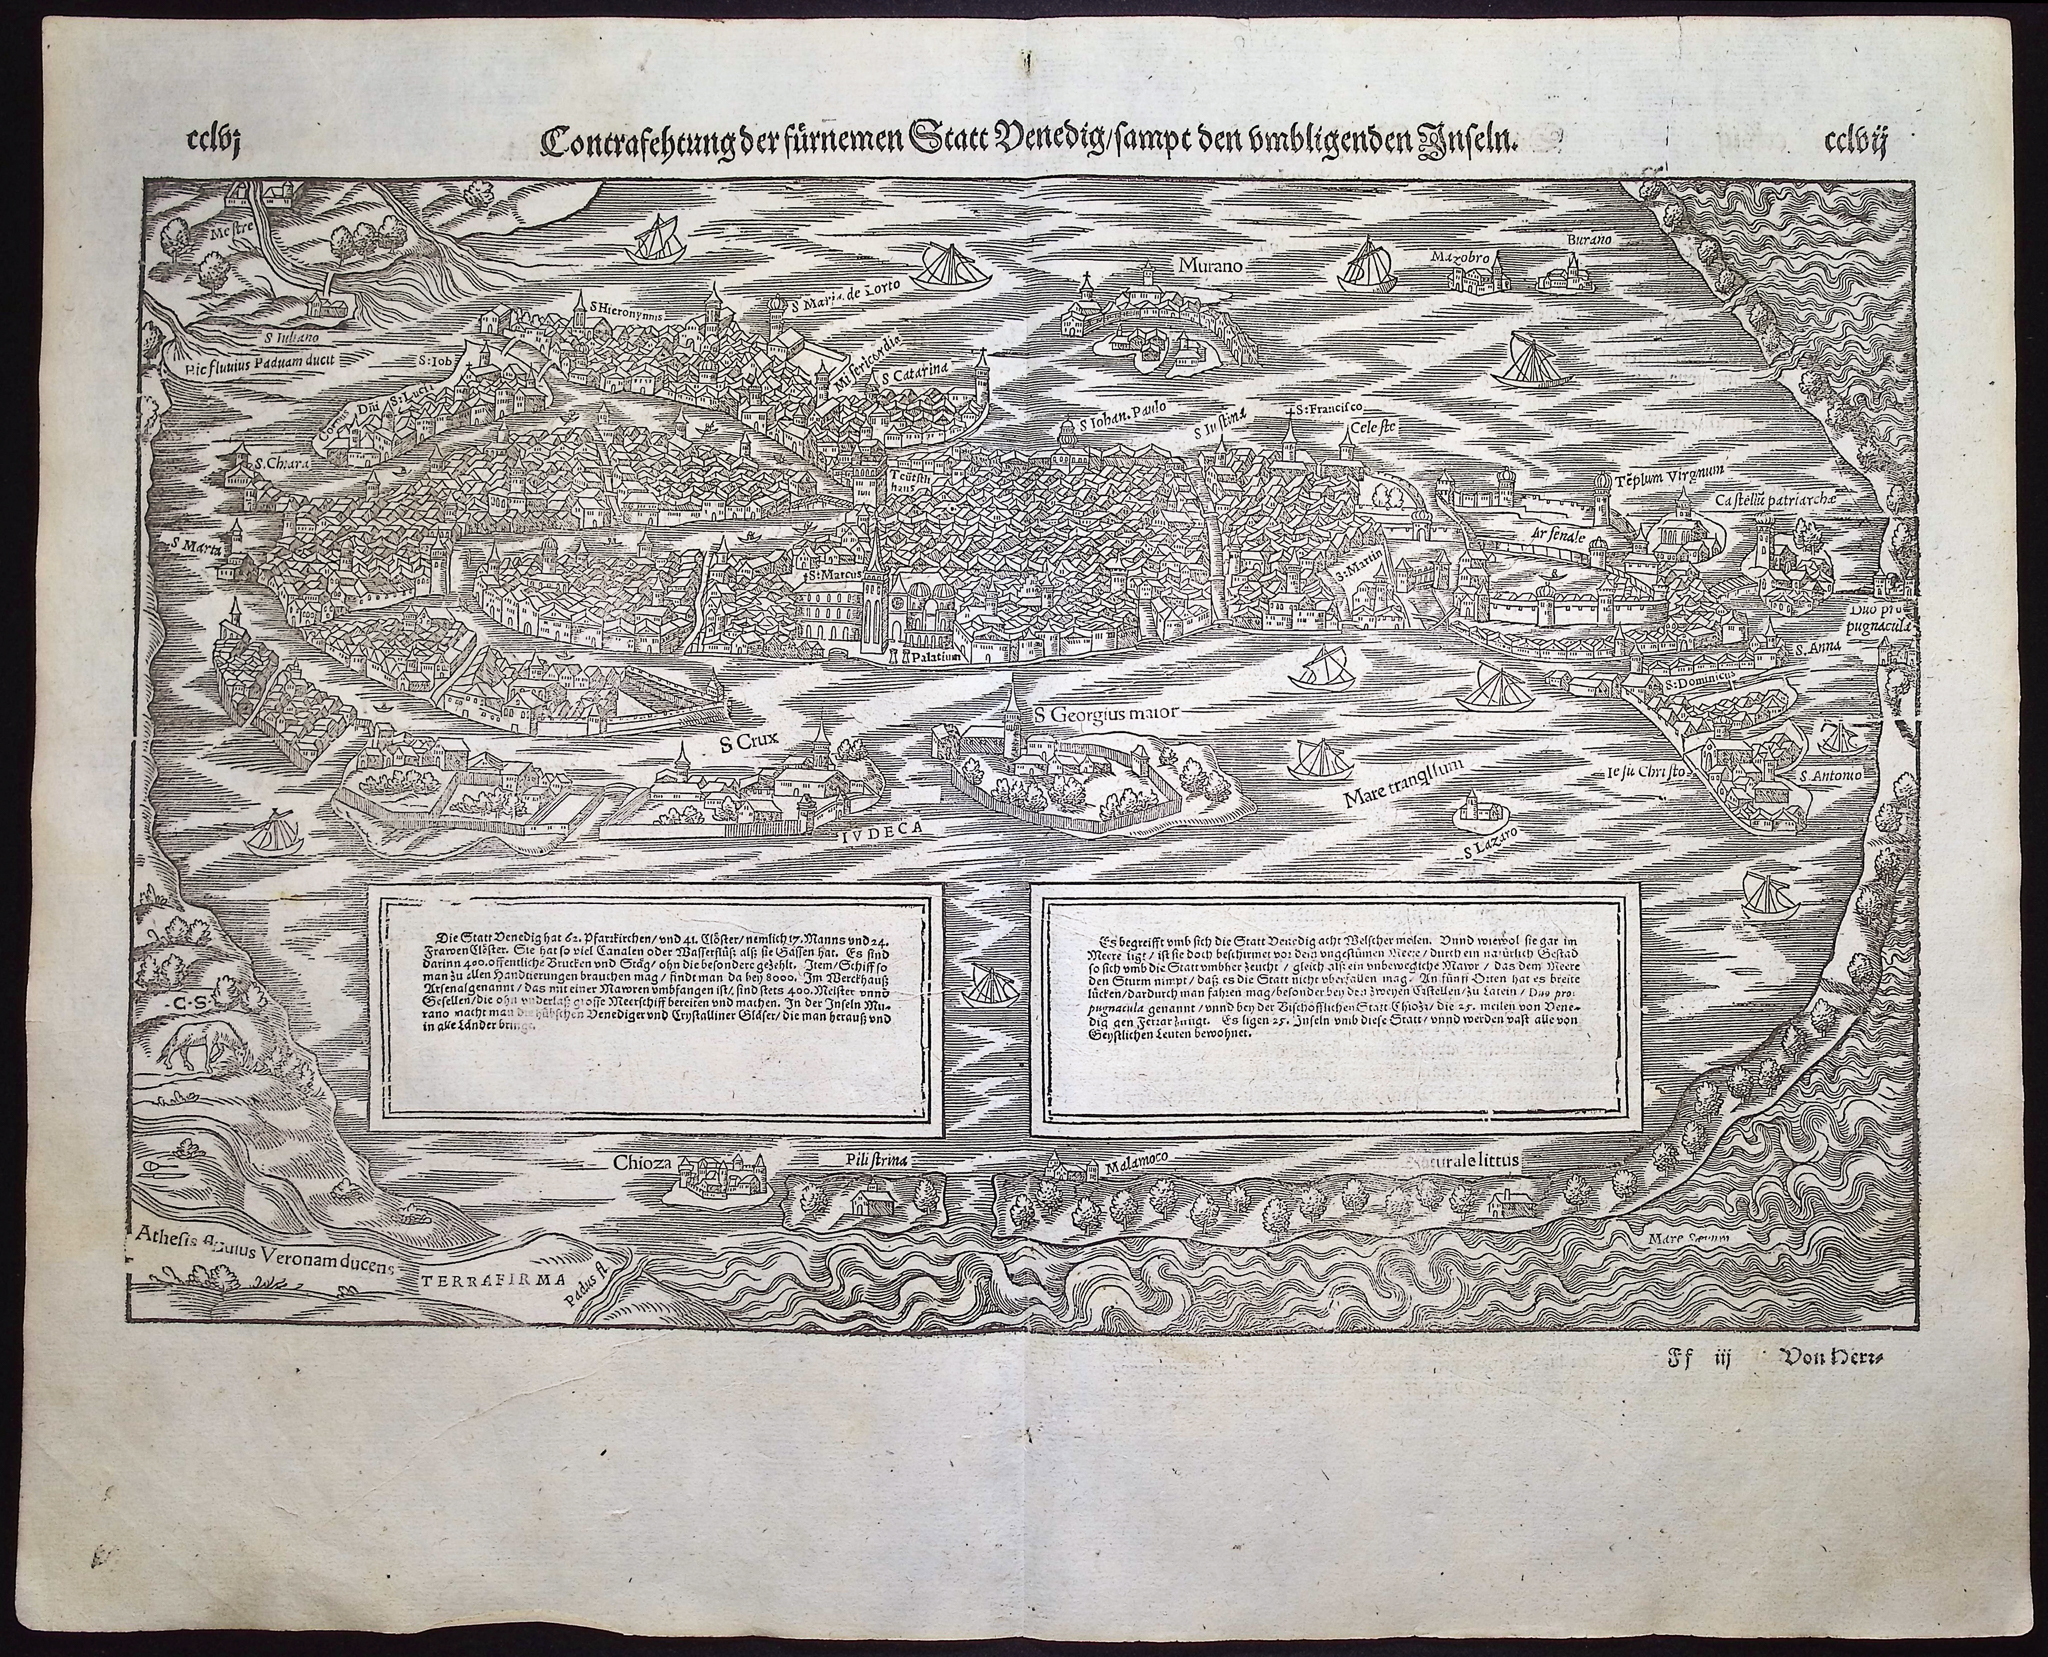 cclvj
Contrafehtung der fürnemen Statt Venedig/sampt den vmbligenden Inseln.
cclvij
Mestre
S Iuliano
Hic fluvius Paduam ducit
S:Iob
Corpus Dñi S:Luci
S Hieronymis
S Maria de Lorto
Misericordia
S Catarina
Murano
Mazobro
Burano
S.Chiara
S Marta
S Iohan.Paulo
S Iustina
S:Francisco
Celeste
Teütsch
haus
Tẽplum Virginum
Castellũ patriarchæ
Arsenale
S:Marcus
S:Martin
Palatium
Duo pro
pugnacula
S.Anna
S:Dominicus
S Georgius maior
S Crux
IVDECA
Mare tranqllum
Iesu Christo
S.Antonio
S Lazaro
Die Statt Venedig hat 62. Pfarrkirchen/vnd 41. Clöster/nemlich 17. Manns vnd 24.
Frawen Clöster. Sie hat so viel Canalen oder Wasserflüß alß sie Gassen hat. Es sind
darinn 400.offentliche Brucken vnd Stäg/ohn die besondere gezehlt. Item/Schiff so
man zu allen Handtierungen brauchen mäg/findt man da bey 8000. Im Werckhauß
Arsenal genannt/das mit einer Mawren vmbfangen ist/sind stets 400. Meister vnnd
Gesellen/die ohn vnderlaß grosse Meerschiff bereiten vnd machen. In der Inseln Mu-
rano macht man die hübschen Venediger vnd Crystalliner Gläser/die man herauß vnd
in alle Länder bringt.
Es begreifft vmb sich die Statt Venedig acht Welscher meilen. Vnnd wiewol sie gar im
Meere ligt/ist sie doch beschirmet vor dem vngestümen Meere/durch ein natürlich Gestad
so sich vmb die Statt vmbher zeucht/gleich als ein vnbewegliche Mawr/das dem Meere
den Sturm nimpt/daß es die Statt nicht vberfallen mag. An fünff Orten hat es breite
lücken/dardurch man fahren mag/besonder bey den zweyen Castellen/zu Latein/Duo pro-
pugnacula genannt/vnnd bey der Bischöfflichen Statt Chioza/die 25. meilen von Vene-
dig gen Ferrar zu ligt. Es ligen 25. Inseln vmb diese Statt/vnnd werden vast alle von
Geystlichen Leuten bewohnet.
-C-S-
Chioza
Pilistrina
Malamoco
Naturale littus
Athesis fluuius Veronam ducens
TERRAFIRMA
Padus fl.
Mare
Ff iij
Von Herr-